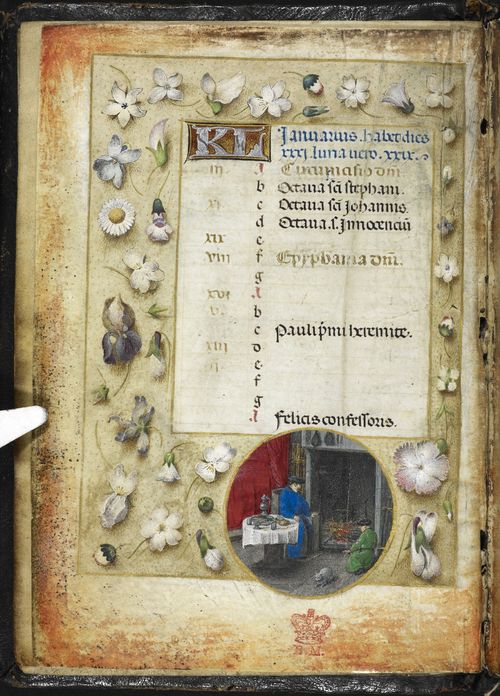 KL Januarius habet dies
xxxi. luna vero. xxix.
iii. A Circumcisio dni.
b Octaua sci stephani.
xi c Octaua sci Johannis.
d Octaua. s. Innocenciu
xix e
viii f Epyphania dni.
g
xvi A
v. b
c Pauli pmi heremite.
xiii d
ii e.
f
g
A Felicis confessoris.
B.M.